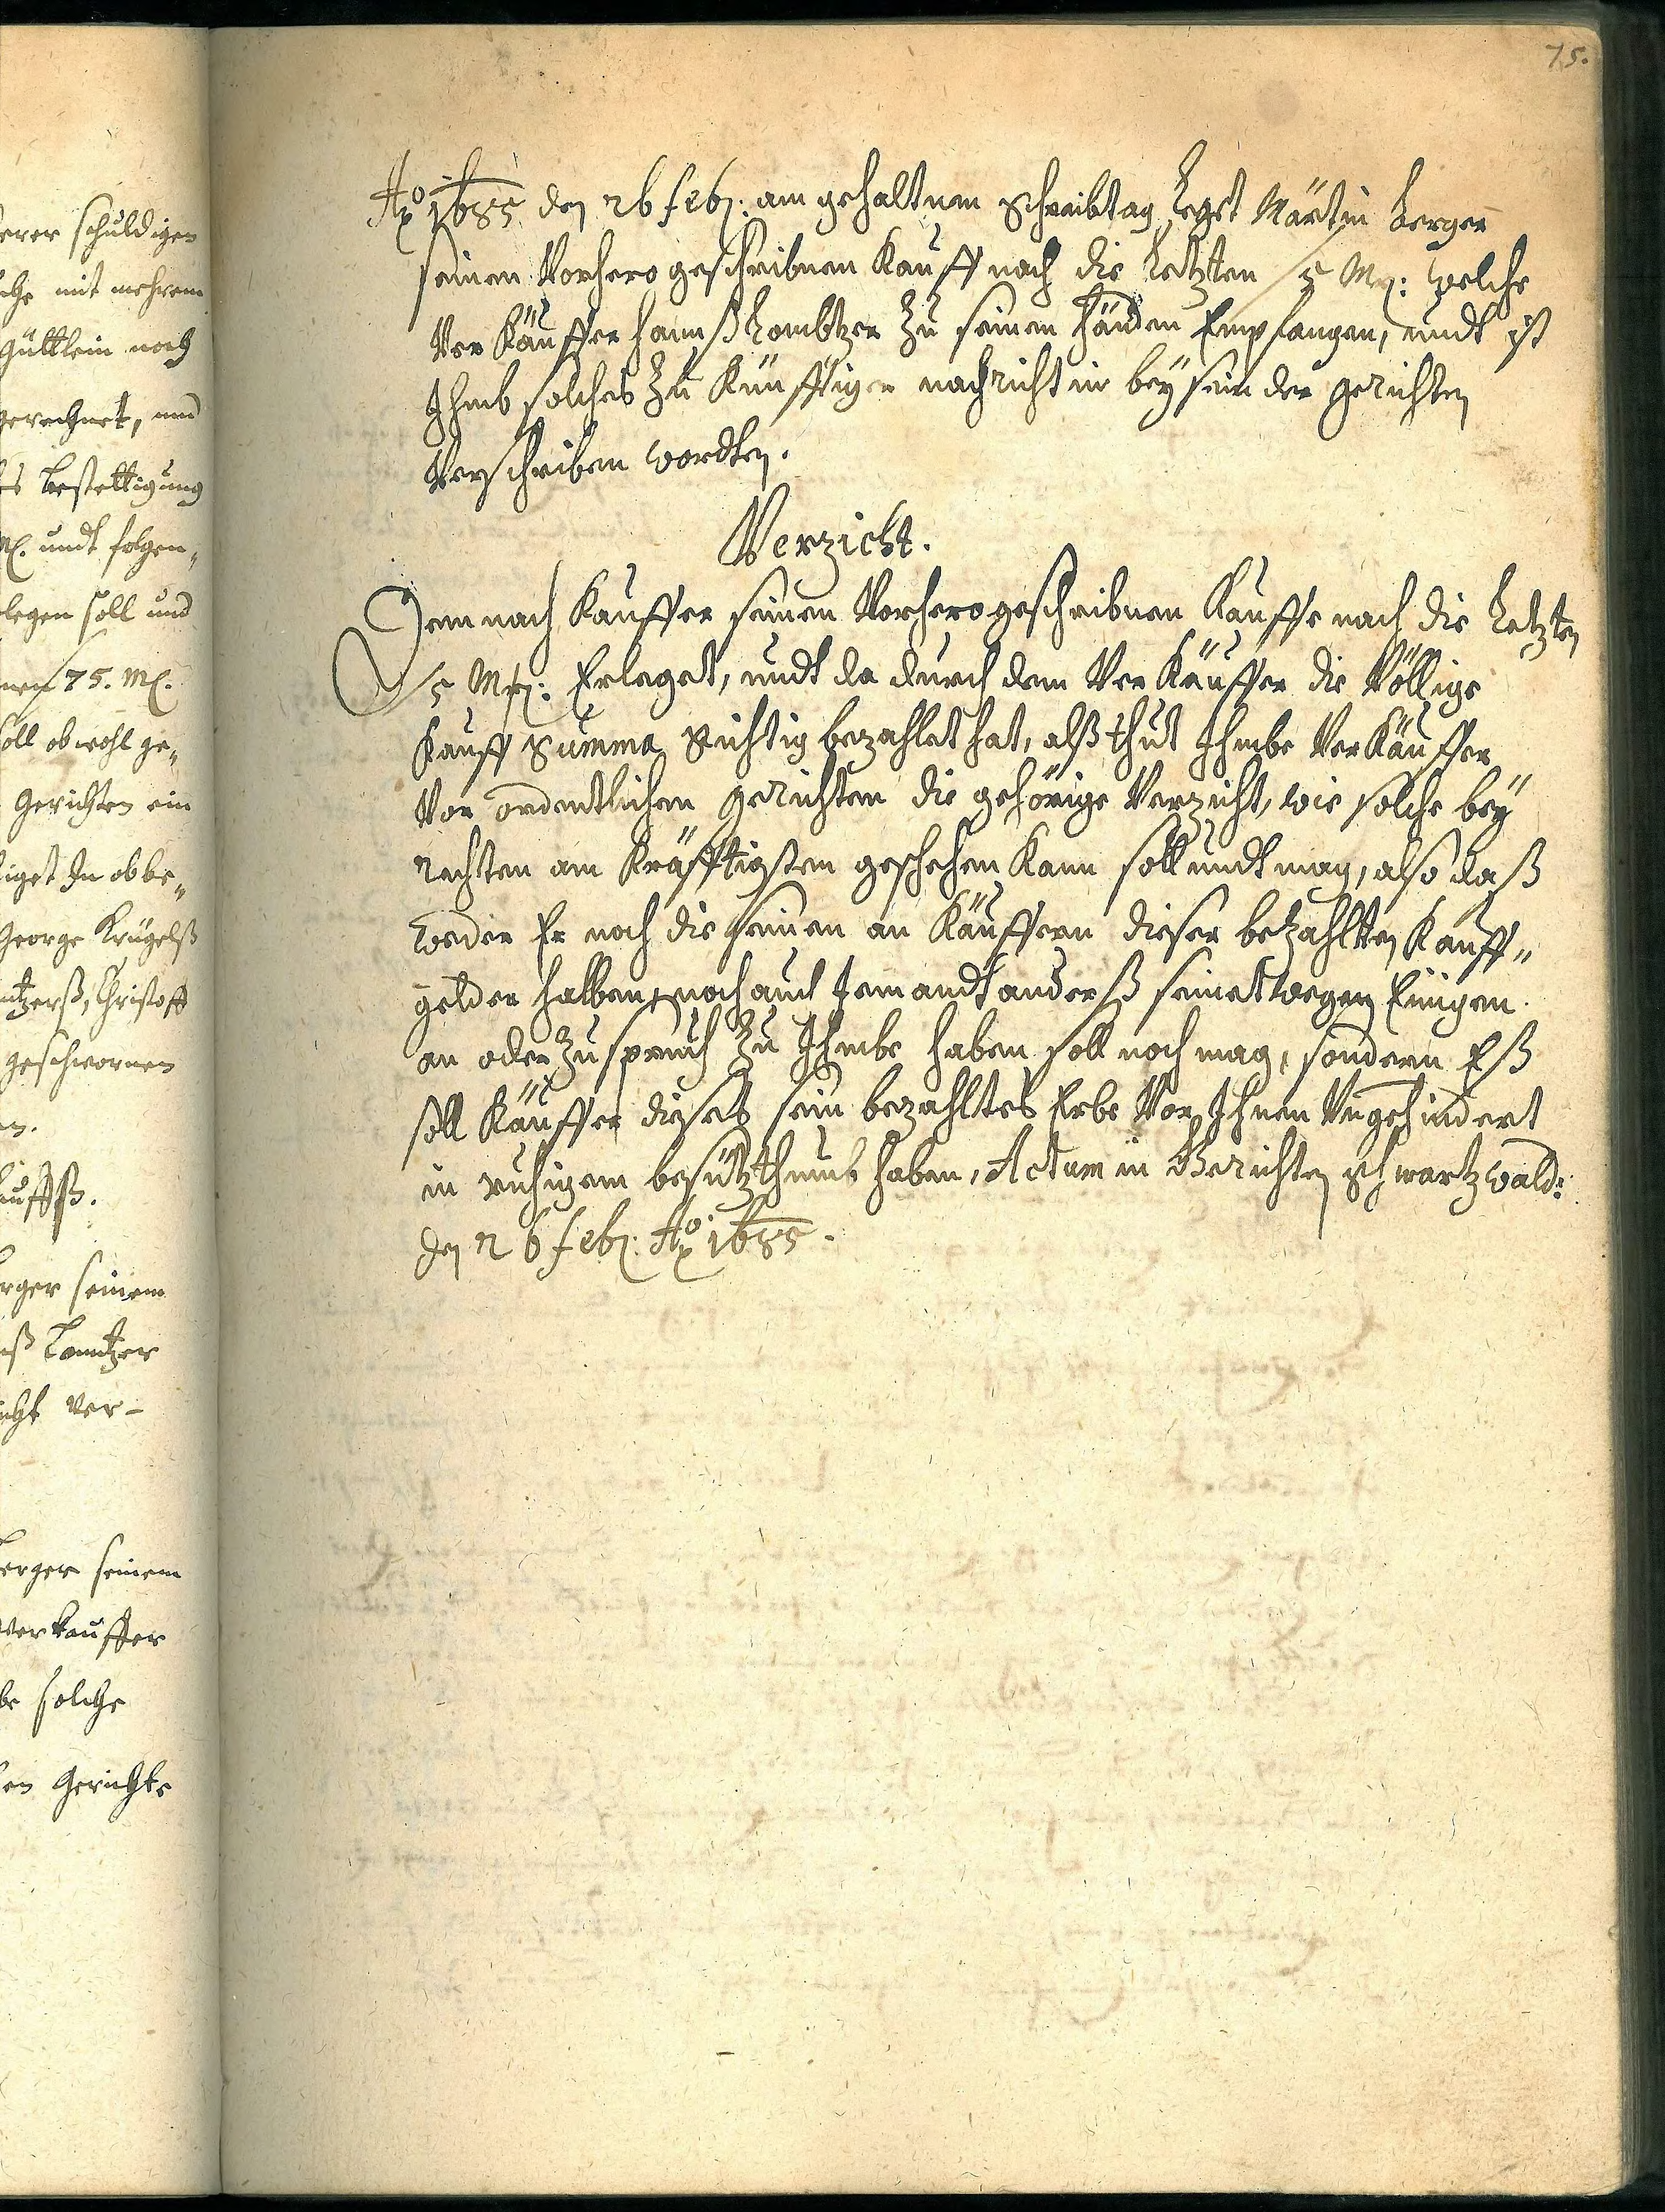 75.
Ao 1685 den 26 Feb: am gehaltnen Schreibtag Legt Märtin Berger
seinen Vorhero geschribnen Kauff nach die Letzten 5 Mrg: welche
Ver Käuffer Hannß Lombtzer zu seinen Händen Empfangen, undt ist
Ihmb solches zu Künfftiger nachricht in beysein der gerichten
Verschriben wordten.
Verzicht.
Demnach Kauffer seinen Vorhero geschribnen Kauffe nach die Letzten
5 Mrg: Erleget, undt da durch dem Ver Käuffer die Völlige
Kauff Summa Richtig bezahlet hat, alß thut Ihmbe Ver Käuffer
Vor ordentlichen gerichten die gehörige Verzicht, wie solche bey
rechten am Kräfftigsten geschehen Kann soll undt mag, also daß
weder Er noch die seinen an Käuffern dieser betzahlten Kauff„
gelder halben, noch auch Jemandt anderß seinetwegen Einigen
an oder Zuspruch zu Ihmbe haben soll noch mag, sondern Eß
soll Käuffer dieses sein bezahltes Erbe Vor Ihnen Ungehindert
in ruhigem besützthumb haben, Actum in Gerichten Schwartzwald:
den 26 Feb: Ao 1685.
erer schuldigen
mit mehrem
güttlein noch
gerechnet, und
Bestettigung
undt folgen„
legen soll und
75. M.
soll ob wohl ge„
Gerichten ein
In obbe„
George Krügelß
Christoff
geschwornen
erger seinem
Lomtzer
Ver-
erger seinem
Verkauffer
solche
en Gerichts